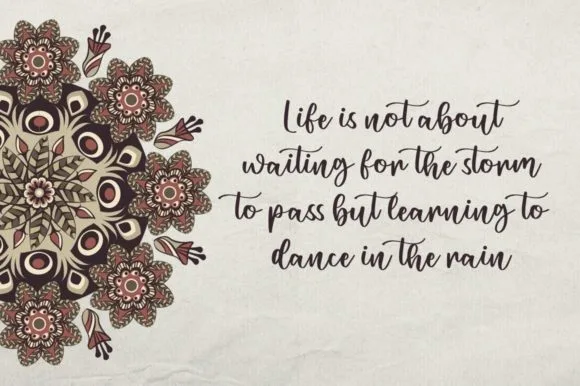 Life is not about
waiting for the storm
to pass but learning to
dance in the rain